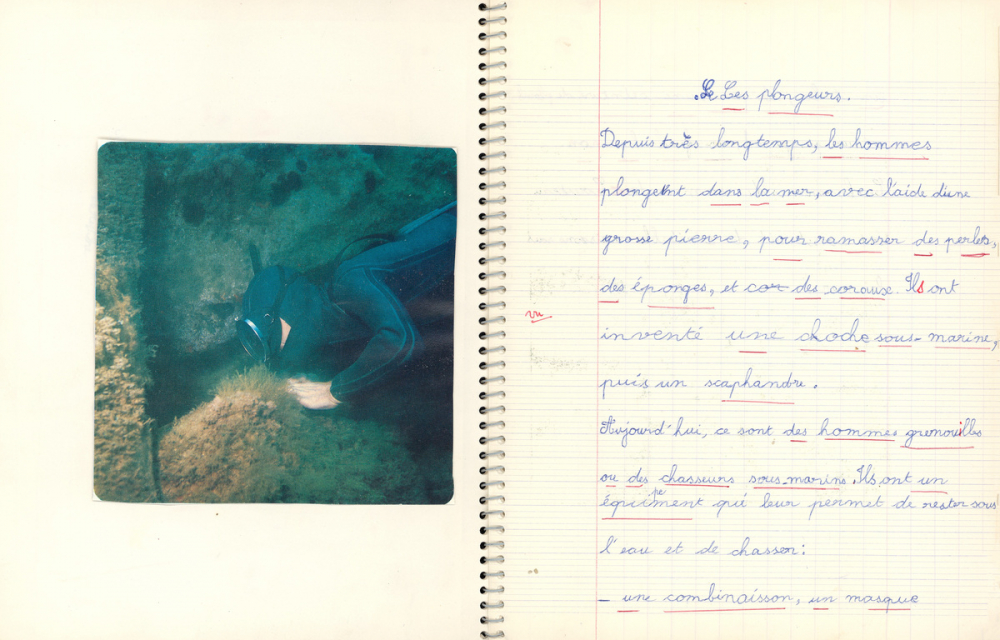 Les plongeurs.
Depuis très longtemps, les hommes
plongent dans la mer, avec l'aide d'une
grosse pierre, pour ramasser des perles,
des éponges, et cor des coraux. Ils ont
vu
inventé une cloche sous-marine,
puis un scaphandre.
Aujourd'hui, ce sont des hommes grenouilles
ou des chasseurs sous-marins. Ils ont un
équipement qui leur permet de rester sous
l'eau et de chasser:
- une combinaison, un masque